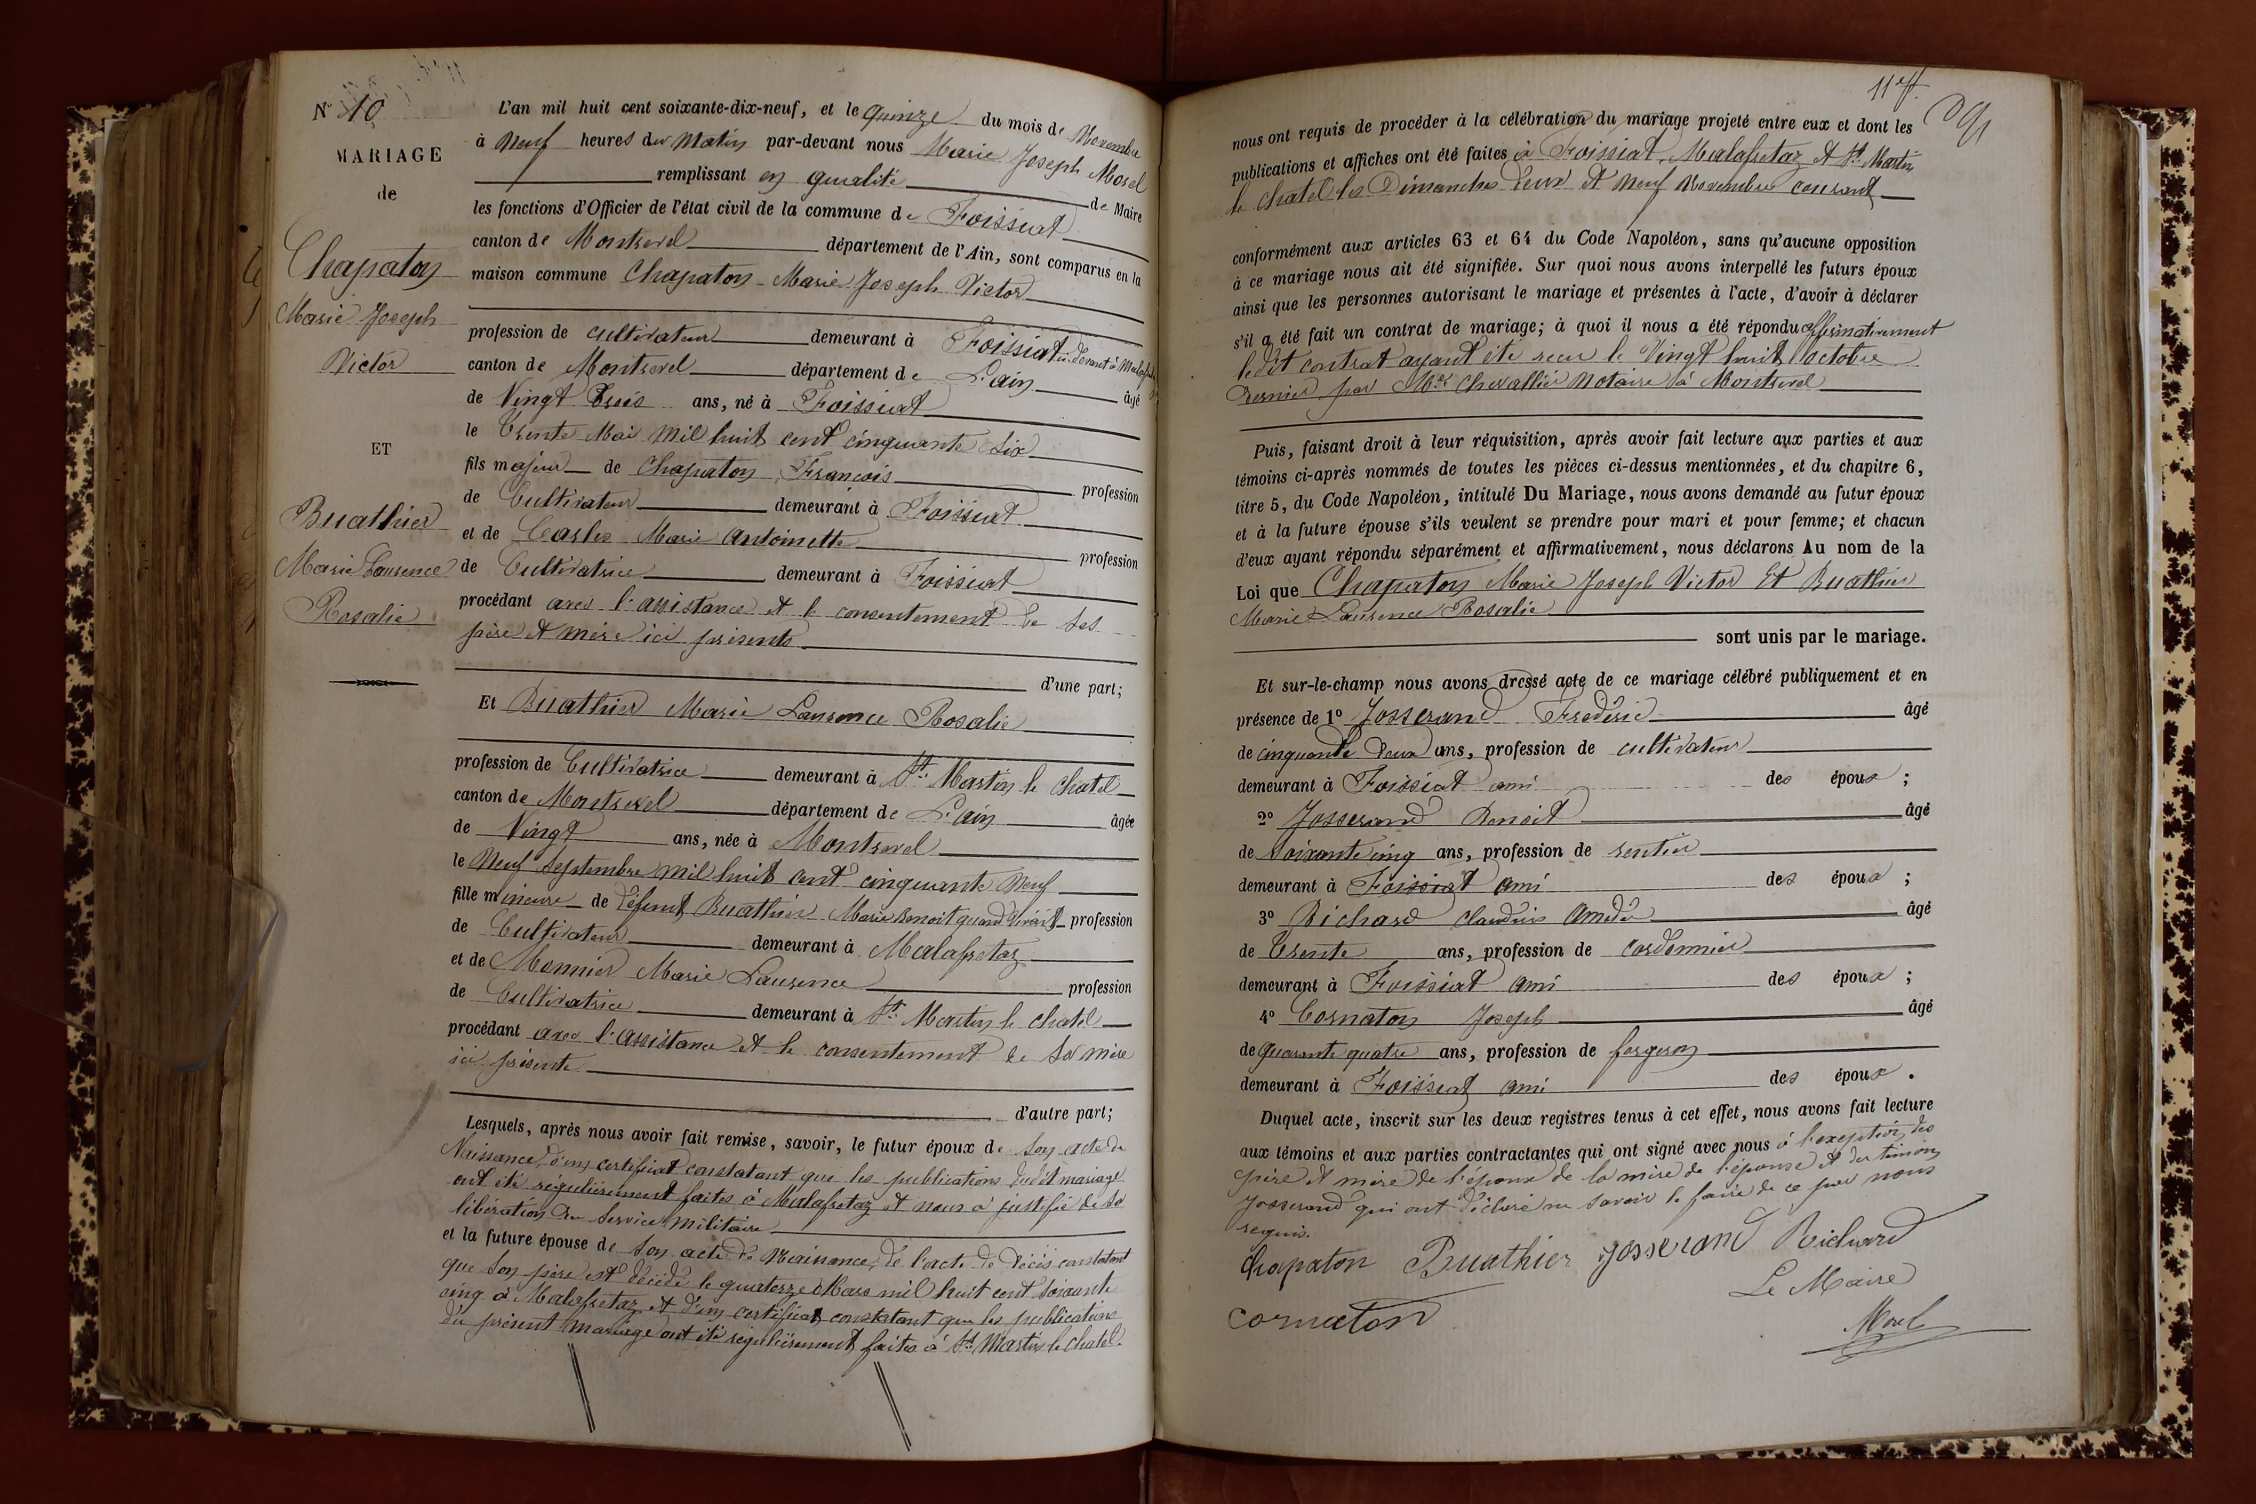 N° 10
MARIAGE
de
Chapaton
Marie Joseph
Victor
ET
Buathier
Marie Laurence
Rosalie
L'an mil huit cent soixante-dix-neuf, et le quinze du mois de Novembre
à Neuf heures du Matin par-devant nous Marie Joseph Morel
remplissant en qualité de Maire
les fonctions d'Officier de l'état civil de la commune de Foissiat
canton de Montrevel département de l'Ain, sont comparus en la
maison commune Chapaton Marie Joseph Victor
profession de cultivateur demeurant à Foissiat
canton de Montrevel département de L'ain âgé
de Vingt Trois ans, né à Foissiat
le Trente Mai Mil huit cent cinquante six
fils majeur de Chapaton François profession
de Cultivateur demeurant à Foissiat
et de Carles Marie Antoinette profession
de Cultivatrice demeurant à Foissiat
procédant avec l'assistance et le consentement de ses
père et mère ici présents
d'une part;
Et Buathier Marie Laurence Rosalie
profession de Cultivatrice demeurant à St Martin le Chatel
canton de Montrevel département de L'ain âgée
de Vingt ans, née à Montrevel
le Neuf Septembre Mil huit cent cinquante Neuf
fille mineure de défunt Buathier Marie Benoit quand vivait profession
de Cultivateur demeurant à Malafretaz
et de Monnier Marie Laurence profession
de Cultivatrice demeurant à St Martin le Chatel
procédant avec l'assistance et le consentement de sa mère
ici présente
d'autre part;
Lesquels, après nous avoir fait remise, savoir, le futur époux de Son acte de
Naissance, d'un certificat constatant que les publications dudit mariage
ont été régulièrement faites à Malafretaz et nous a justifié de sa
libération du Service Militaire
et la future épouse de Son acte de Naissance, de l'acte de décès constatant
que Son père est décédé le quatorze Mars mil huit cent soixante
cinq à Malafretaz et d'un certificat constatant que les publications
du présent Mariage ont été régulièrement faites à St Martin le Chatel.
nous ont requis de procéder à la célébration du mariage projeté entre eux et dont les
publications et affiches ont été faites à Foissiat, Malafretaz et St Martin
le Chatel les Dimanches deux et Neuf Novembre courant
conformément aux articles 63 et 64 du Code Napoléon, sans qu'aucune opposition
à ce mariage nous ait été signifiée. Sur quoi nous avons interpellé les futurs époux
ainsi que les personnes autorisant le mariage et présentes à l'acte, d'avoir à déclarer
s'il a été fait un contrat de mariage; à quoi il nous a été répondu affirmativement
ledit contrat ayant été reçu le Vingt huit octobre
Dernier par Me Chevallier Notaire à Montrevel
Puis, faisant droit à leur réquisition, après avoir fait lecture aux parties et aux
témoins ci-après nommés de toutes les pièces ci-dessus mentionnées, et du chapitre 6,
titre 5, du Code Napoléon, intitulé Du Mariage, nous avons demandé au futur époux
et à la future épouse s'ils veulent se prendre pour mari et pour femme; et chacun
d'eux ayant répondu séparément et affirmativement, nous déclarons Au nom de la
Loi que Chapaton Marie Joseph Victor Et Buathier
Marie Laurence Rosalie
sont unis par le mariage.
Et sur-le-champ nous avons dressé acte de ce mariage célébré publiquement et en
présence de 1° Josserand Frédéric âgé
de cinquante deux ans, profession de cultivateur
demeurant à Foissiat ami des époux ;
2° Josserand Benoit âgé
de Soixante cinq ans, profession de rentier
demeurant à Foissiat ami des époux ;
3° Richard Claudius Amédée âgé
de Trente ans, profession de cordonnier
demeurant à Foissiat ami des époux ;
4° Cornaton Joseph âgé
de quarante quatre ans, profession de forgeron
demeurant à Foissiat ami des époux .
Duquel acte, inscrit sur les deux registres tenus à cet effet, nous avons fait lecture
aux témoins et aux parties contractantes qui ont signé avec nous à l'exception des
père et mère de l'époux de la mère de l'épouse et du témoin
Josserand qui ont déclaré ne savoir le faire de ce par nous
requis.
Chapaton Buathier Josserand Richard
Le Maire
Cornaton
Morel